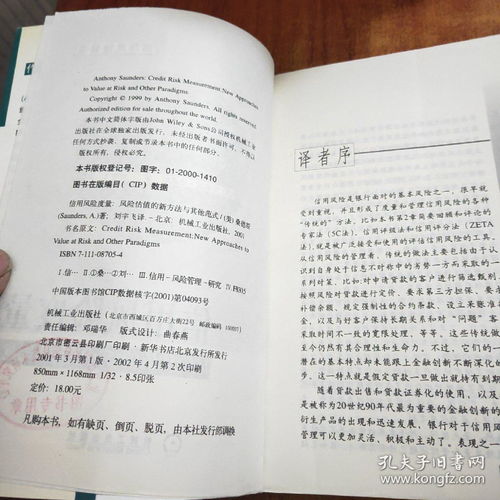 Anthony Saunders: Credit Risk Measurement:New Approaches
to Value at Risk and Other Paradigms
Copyright © 1999 by Anthony Saunders. All rights reserved.
Authorized edition for sale throughout the world.
本书中文简体字版由John Wiley & Sons公司授权机械工业
出版社在全球独家出版发行，未经出版者书面许可，不得以
任何方式抄袭、复制或节录本书中的任何部分。
版权所有，侵权必究。
本书版权登记号：图字：01-2000-1410
图书在版编目（CIP）数据
信用风险度量：风险估值的新方法与其他范式/(美)桑德斯
(Saunders, A.)著；刘宇飞译－北京：机械工业出版社，2001
书名原文：Credit Risk Measurement:New Approaches to
Value at Risk and Other Paradigms
ISBN 7-111-08705-4
Ⅰ.信… Ⅱ①桑…②刘… Ⅲ.信用－风险管理－研究 Ⅳ.F805
中国版本图书馆CIP数据核字(2001)第04093号
机械工业出版社（北京市西城区百万庄大街22号 邮政编码 100037）
责任编辑：邓瑞华 版式设计：曲春燕
北京市密云县印刷厂印刷·新华书店北京发行所发行
2001年3月第1版·2002年4月第2次印刷
850mm×1168mm 1/32·8.5印张
定价：18.00元
凡购本书，如有缺页、倒页、脱页，由本社发行部调换
译者序
信用风险是银行面对的基本风险之一，原早就
受到重视，并且形成了度量和管理信用风险的各种
“传统的”方法，比如本书第2章简要回顾和评论的
专家法(5C法)、信用评级法和信用评分法（ZETA
法），就是被广泛接受和使用的评估信用风险的工具。
从信用风险的管理看，传统的做法主要包括由于认
识到自身处于信息不对称中的劣势一方而采取的一
系列对策，比如：对申请贷款的客户进行筛选甄别，
按照风险对贷款进行定价、要求第三方担保、要求
补偿余额、规定强制性的合约条款、设立呆账准备
金、以及与好客户保持长期关系和对“问题”客
采取时间不一致的宽限处理，等等。这些传统做
至今仍然有其合理性和生命力，不过，它们的一
潜在的基本特点却未能跟上金融创新不断深化的
步，这一特点就是假定贷款一旦做出就持有到期
随着贷款出售和贷款证券化的使用，以及
是被称为20世纪90年代最为重要的金融创新的
衍生产品的出现和迅速发展，银行对于信用风
管理可以更加灵活、积极和主动了。表现之一
孔夫子旧书网